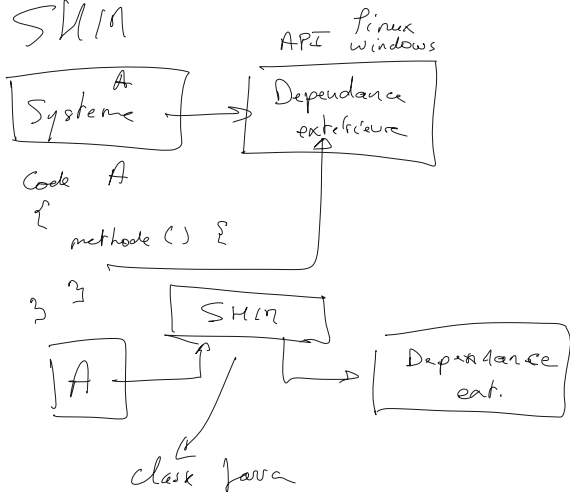 SHIM
API Linux
windows
Systeme A
Dependance
extérieure
Code A
{
methode () {
}
}
SHIM
A
Dependance
ext.
class Java